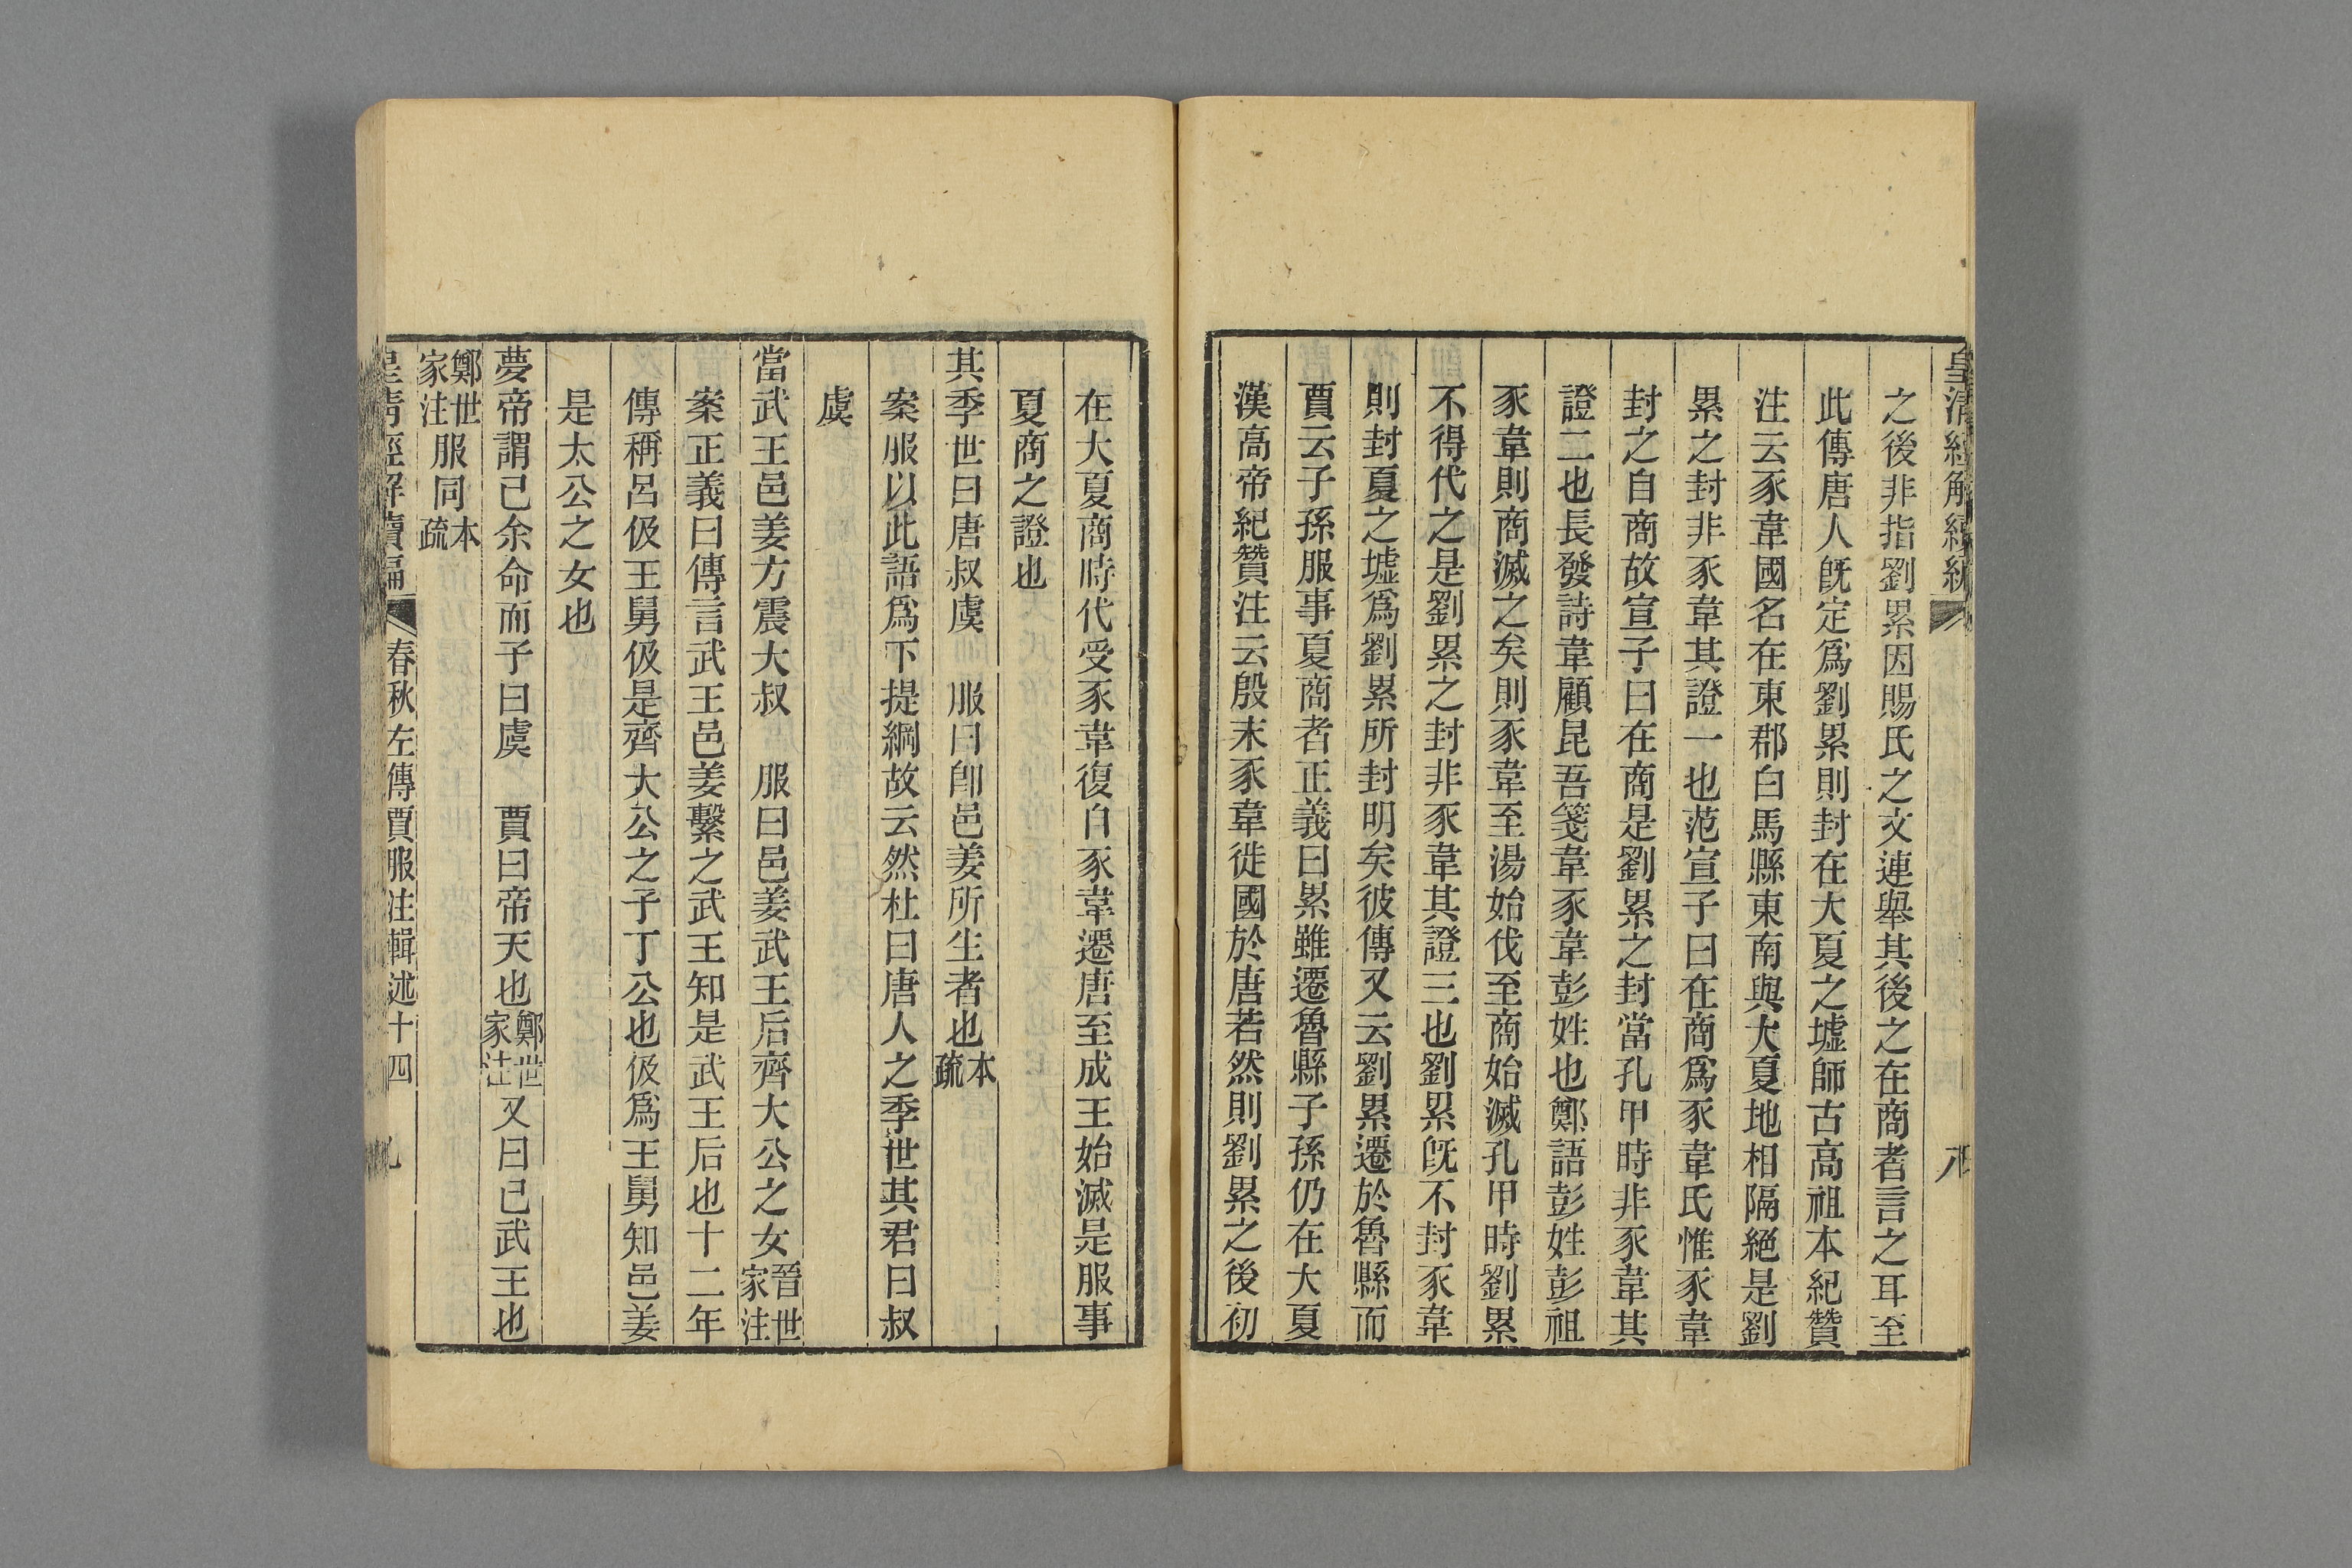 皇清經解續編 八
之後非指劉累因賜氏之文連舉其後之在商者言之耳至
此傳唐人旣定爲劉累則封在大夏之墟師古高祖本紀贊
注云豕韋國名在東郡白馬縣東南與大夏地相隔絕是劉
累之封非豕韋其證一也范宣子曰在商爲豕韋氏惟豕韋
封之自商故宣子曰在商是劉累之封當孔甲時非豕韋其
證二也長發詩韋顧昆吾箋韋豕韋彭姓也鄭語彭姓彭祖
豕韋則商滅之矣則豕韋至湯始伐至商始滅孔甲時劉累
不得代之是劉累之封非豕韋其證三也劉累旣不封豕韋
則封夏之墟爲劉累所封明矣彼傳又云劉累遷於魯縣而
賈云子孫服事夏商者正義曰累雖遷魯縣子孫仍在大夏
漢高帝紀贊注云殷末豕韋徙國於唐若然則劉累之後初
在大夏商時代受豕韋復自豕韋遷唐至成王始滅是服事
夏商之證也
其季世曰唐叔虞 服曰卽邑姜所生者也本疏
案服以此語爲下提綱故云然杜曰唐人之季世其君曰叔
虞
當武王邑姜方震大叔 服曰邑姜武王后齊大公之女晉世家注
案正義曰傳言武王邑姜繫之武王知是武王后也十二年
傳稱呂伋王舅伋是齊大公之子丁公也伋爲王舅知邑姜
是太公之女也
夢帝謂己余命而子曰虞 賈曰帝天也鄭世家注又曰己武王也
鄭世家注服同本疏
皇清經解續編 春秋左傳賈服注輯述十四 九